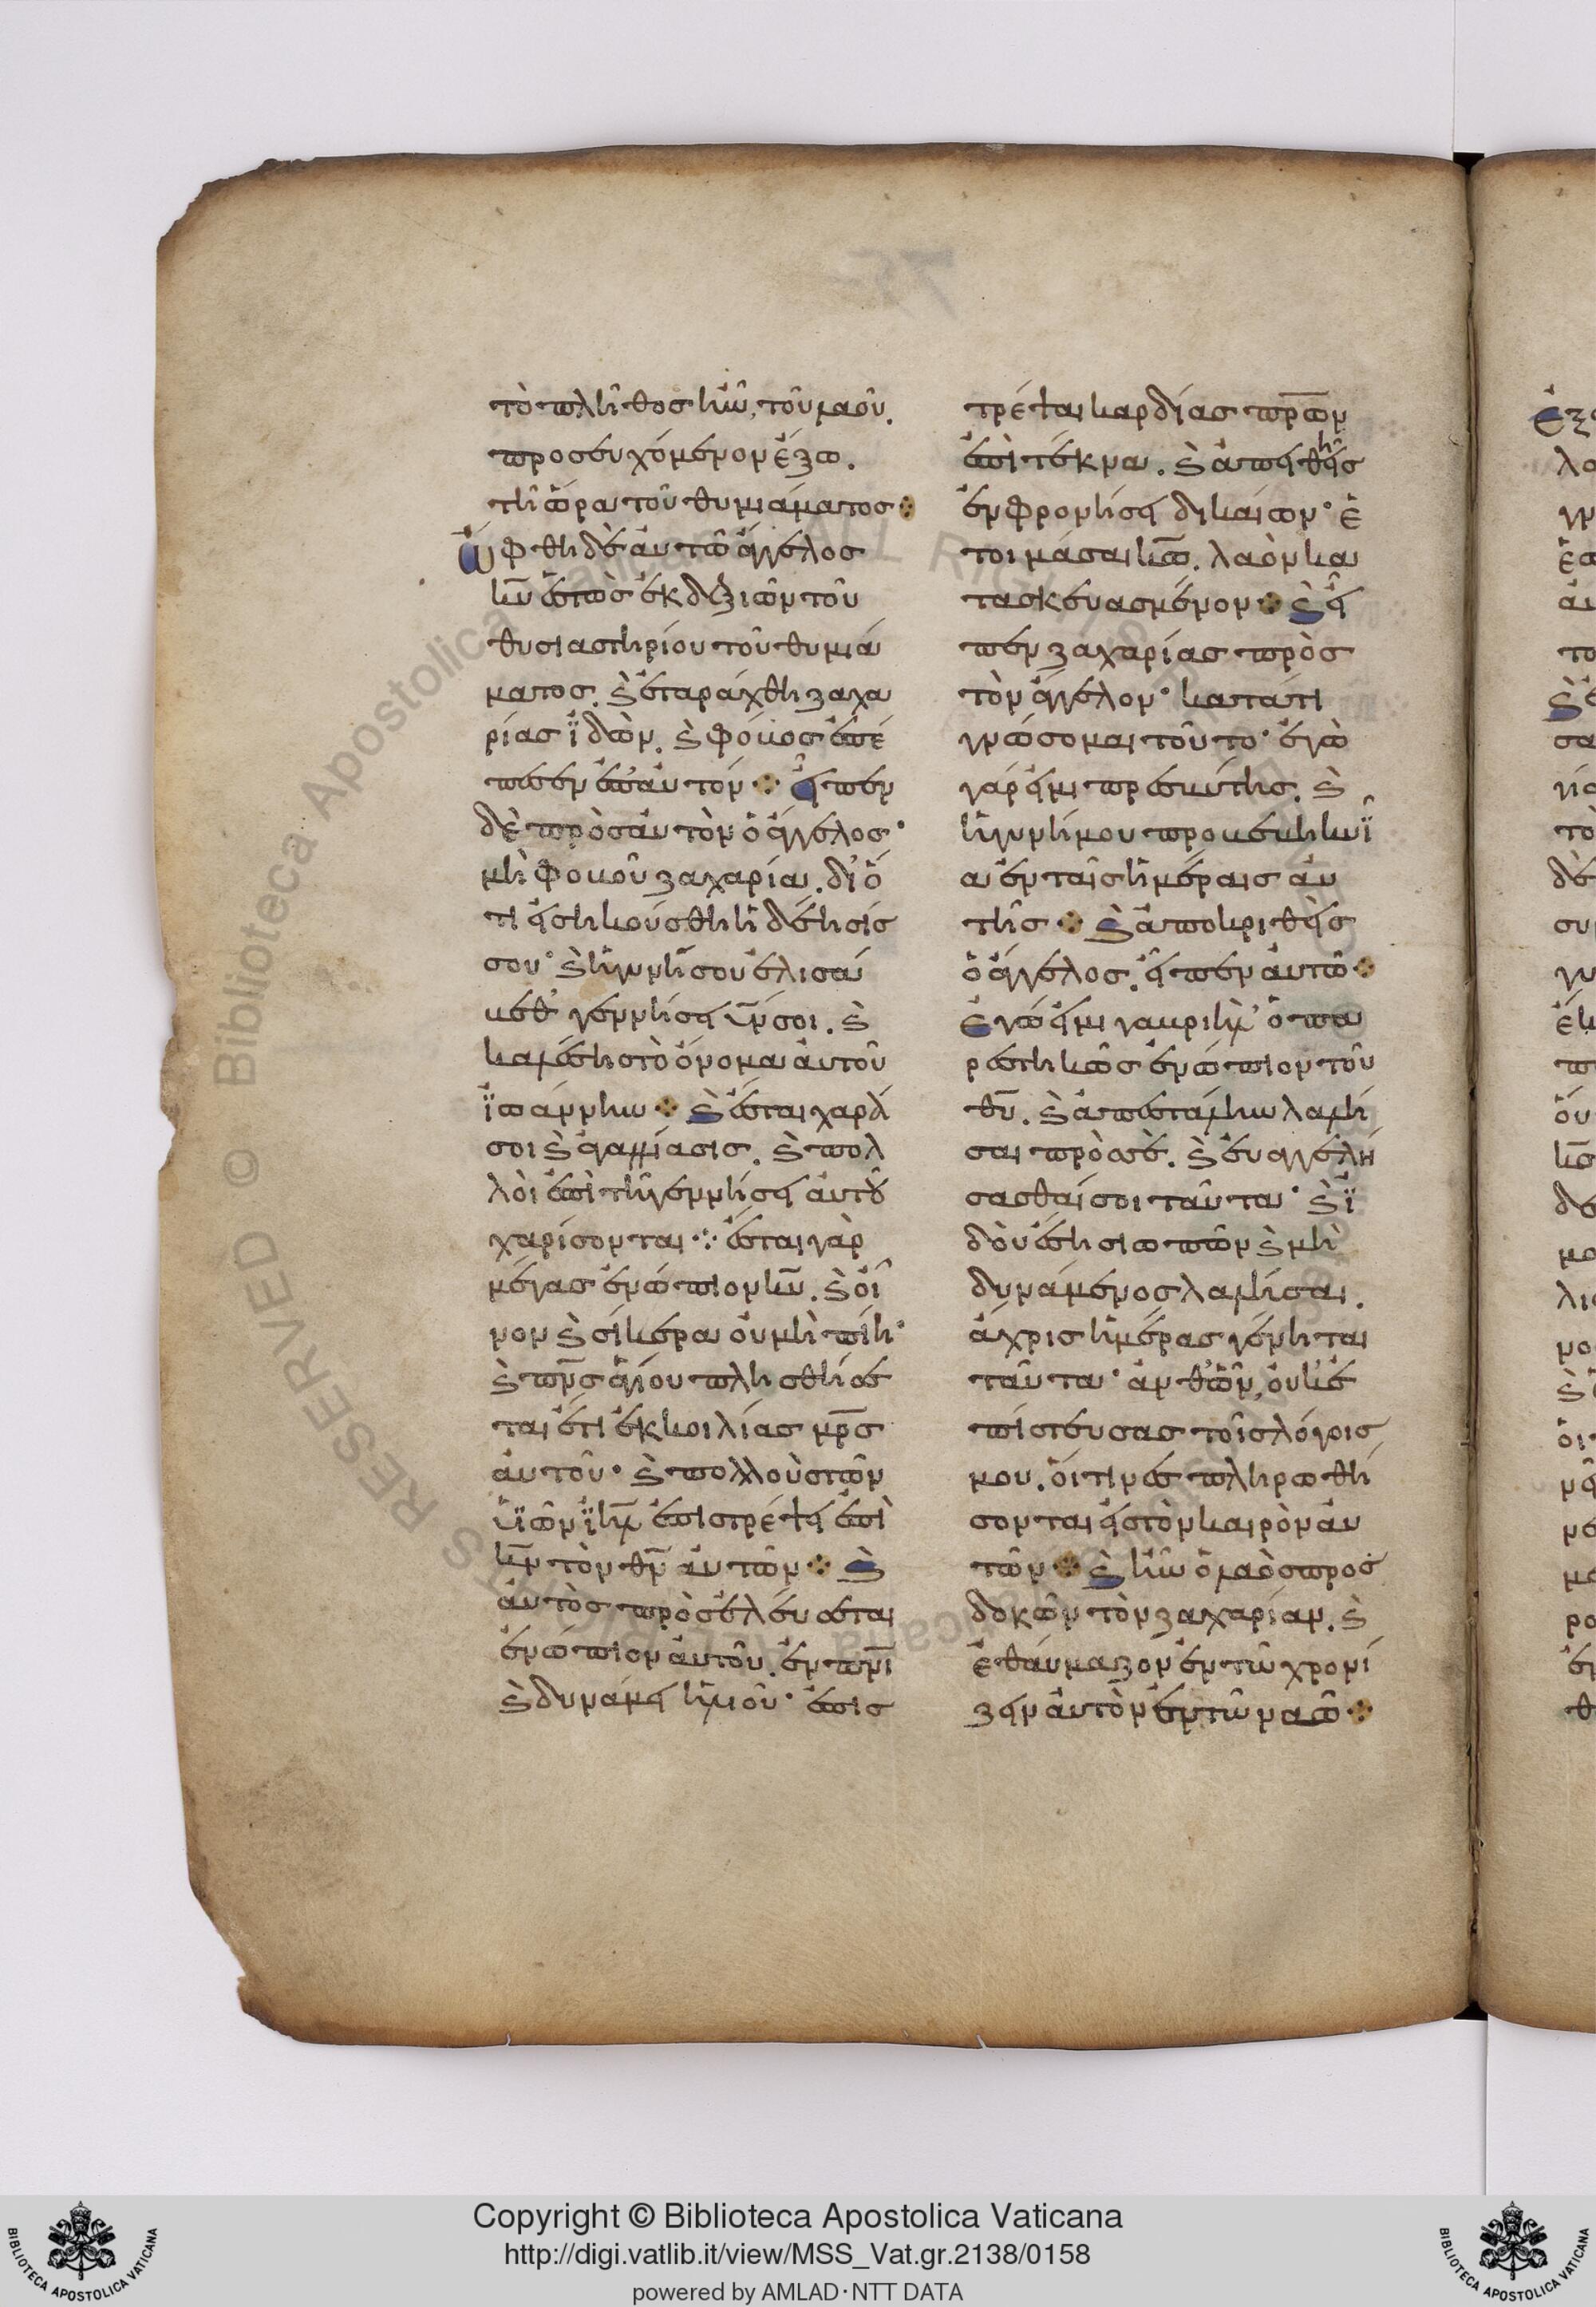 τὸ πλῆθος ἦν, τοῦ λαοῦ.
προσευχόμενον ἔξω.
τῆ ὥρα τοῦ θυμιάματος ⁘
Ὤφθη δὲ αὐτῶ ἄγγελος
κ̅υ̅ ἑστὼς ἐκ δεξιῶν τοῦ
θυσιαστηρίου τοῦ θυμιά
ματος. ϗ ἐταράχθη ζαχα
ρίας ἰδὼν. ϗ φόβος ἐπέ
πεσεν ἐπ' αὐτόν ⁘ εἶπεν
δὲ πρὸς αὐτὸν ὁ ἄγγελος·
μὴ φοβοῦ ζαχαρία. δι' ὅ
τι εἰσηκούσθη ἡ δέησίς
σου· ϗ ἡ γυνή σου ἐλισά
βεθ' γεννήσει υ̅ν̅ σοι. ϗ
καλέσεις τὸ ὄνομα αὐτοῦ
ϊωάννην ⁘ ϗ ἔσται χαρά
σοι ϗ ἀγαλλίασις. ϗ πολ
λὸι ἐπὶ τῆ γεννήσει αὐτοῦ
χαρίσονται ⁘ ἔσται γὰρ
μέγας ἐνώπιον κ̅υ̅. ϗ οἶ
νον ϗ σίκερα οὐ μὴ πίη·
ϗ π̅ν̅ς ἁγίου πλησθήσε
ται ἔτι ἐκ κοιλίας μ̅ρ̅ς
αὐτοῦ· ϗ πολλοὺς τῶν
υἱῶν ι̅η̅λ̅ ἐπιστρέψει ἐπὶ
κ̅ν̅ τὸν θ̅ν̅ αὐτῶν ⁘ ϗ
αὐτὸς προσελεύσεται
ἐνώπιον αὐτοῦ. ἐν π̅ν̅ι
ϗ δυνάμει ἡλιοῦ· ἐπισ
τρέψαι καρδίας π̅ρ̅ων
ἐπὶ τέκνα. ϗ ἀπειθεῖς
ἐν φρονήσει δικαίων· ἑ
τοιμάσαι κ̅ω̅. λαὸν κα
τασκευασμένον ⁘ ϗ εἶ
πεν ζαχαρίας πρὸς
τὸν ἄγγελον· κατατί
γνώσομαι τοῦτο· ἐγὼ
γάρ εἰμι πρεσβύτης. ϗ
ἡ γυνή μου προβεβηκυῖ
α ἐν ταῖς ἡμέραις αὐ
τῆς ⁘ ϗ ἀποκριθεὶς
ὁ ἄγγελος. εἶπεν αὐτῶ ⁘
Ἐγώ εἰμι γαβριὴλ' ὁ πα
ρεστηκὼς ἐνώπιον τοῦ
θ̅υ̅. ϗ ἀπεστάλην λαλῆ
σαι πρὸς σὲ. ϗ εὐαγγελί
σασθαί σοι ταῦτα· ϗ ϊ
δοὺ ἔση σιωπῶν ϗ μὴ
δυνάμενος λαλῆσαι.
ἄχρις ἡμέρας γένηται
ταῦτα· ἀνθ' ὧν, οὐκ ἐ
πίστευσας τοῖς λόγοις
μου. οἵτινες πληρωθή
σονται εἰς τὸν καιρὸν αὐ
τῶν ⁘ ϗ ἦν ὁ λαὸς προσ
δοκῶν τὸν ζαχαρίαν. ϗ
ἐθαύμαζον ἐν τῶ χρονί
ζειν αὐτὸν ἐν τῶ ναῶ ⁘
Copyright © Biblioteca Apostolica Vaticana
http://digi.vatlib.it/view/MSS_Vat.gr.2138/0158
powered by AMLAD·NTT DATA